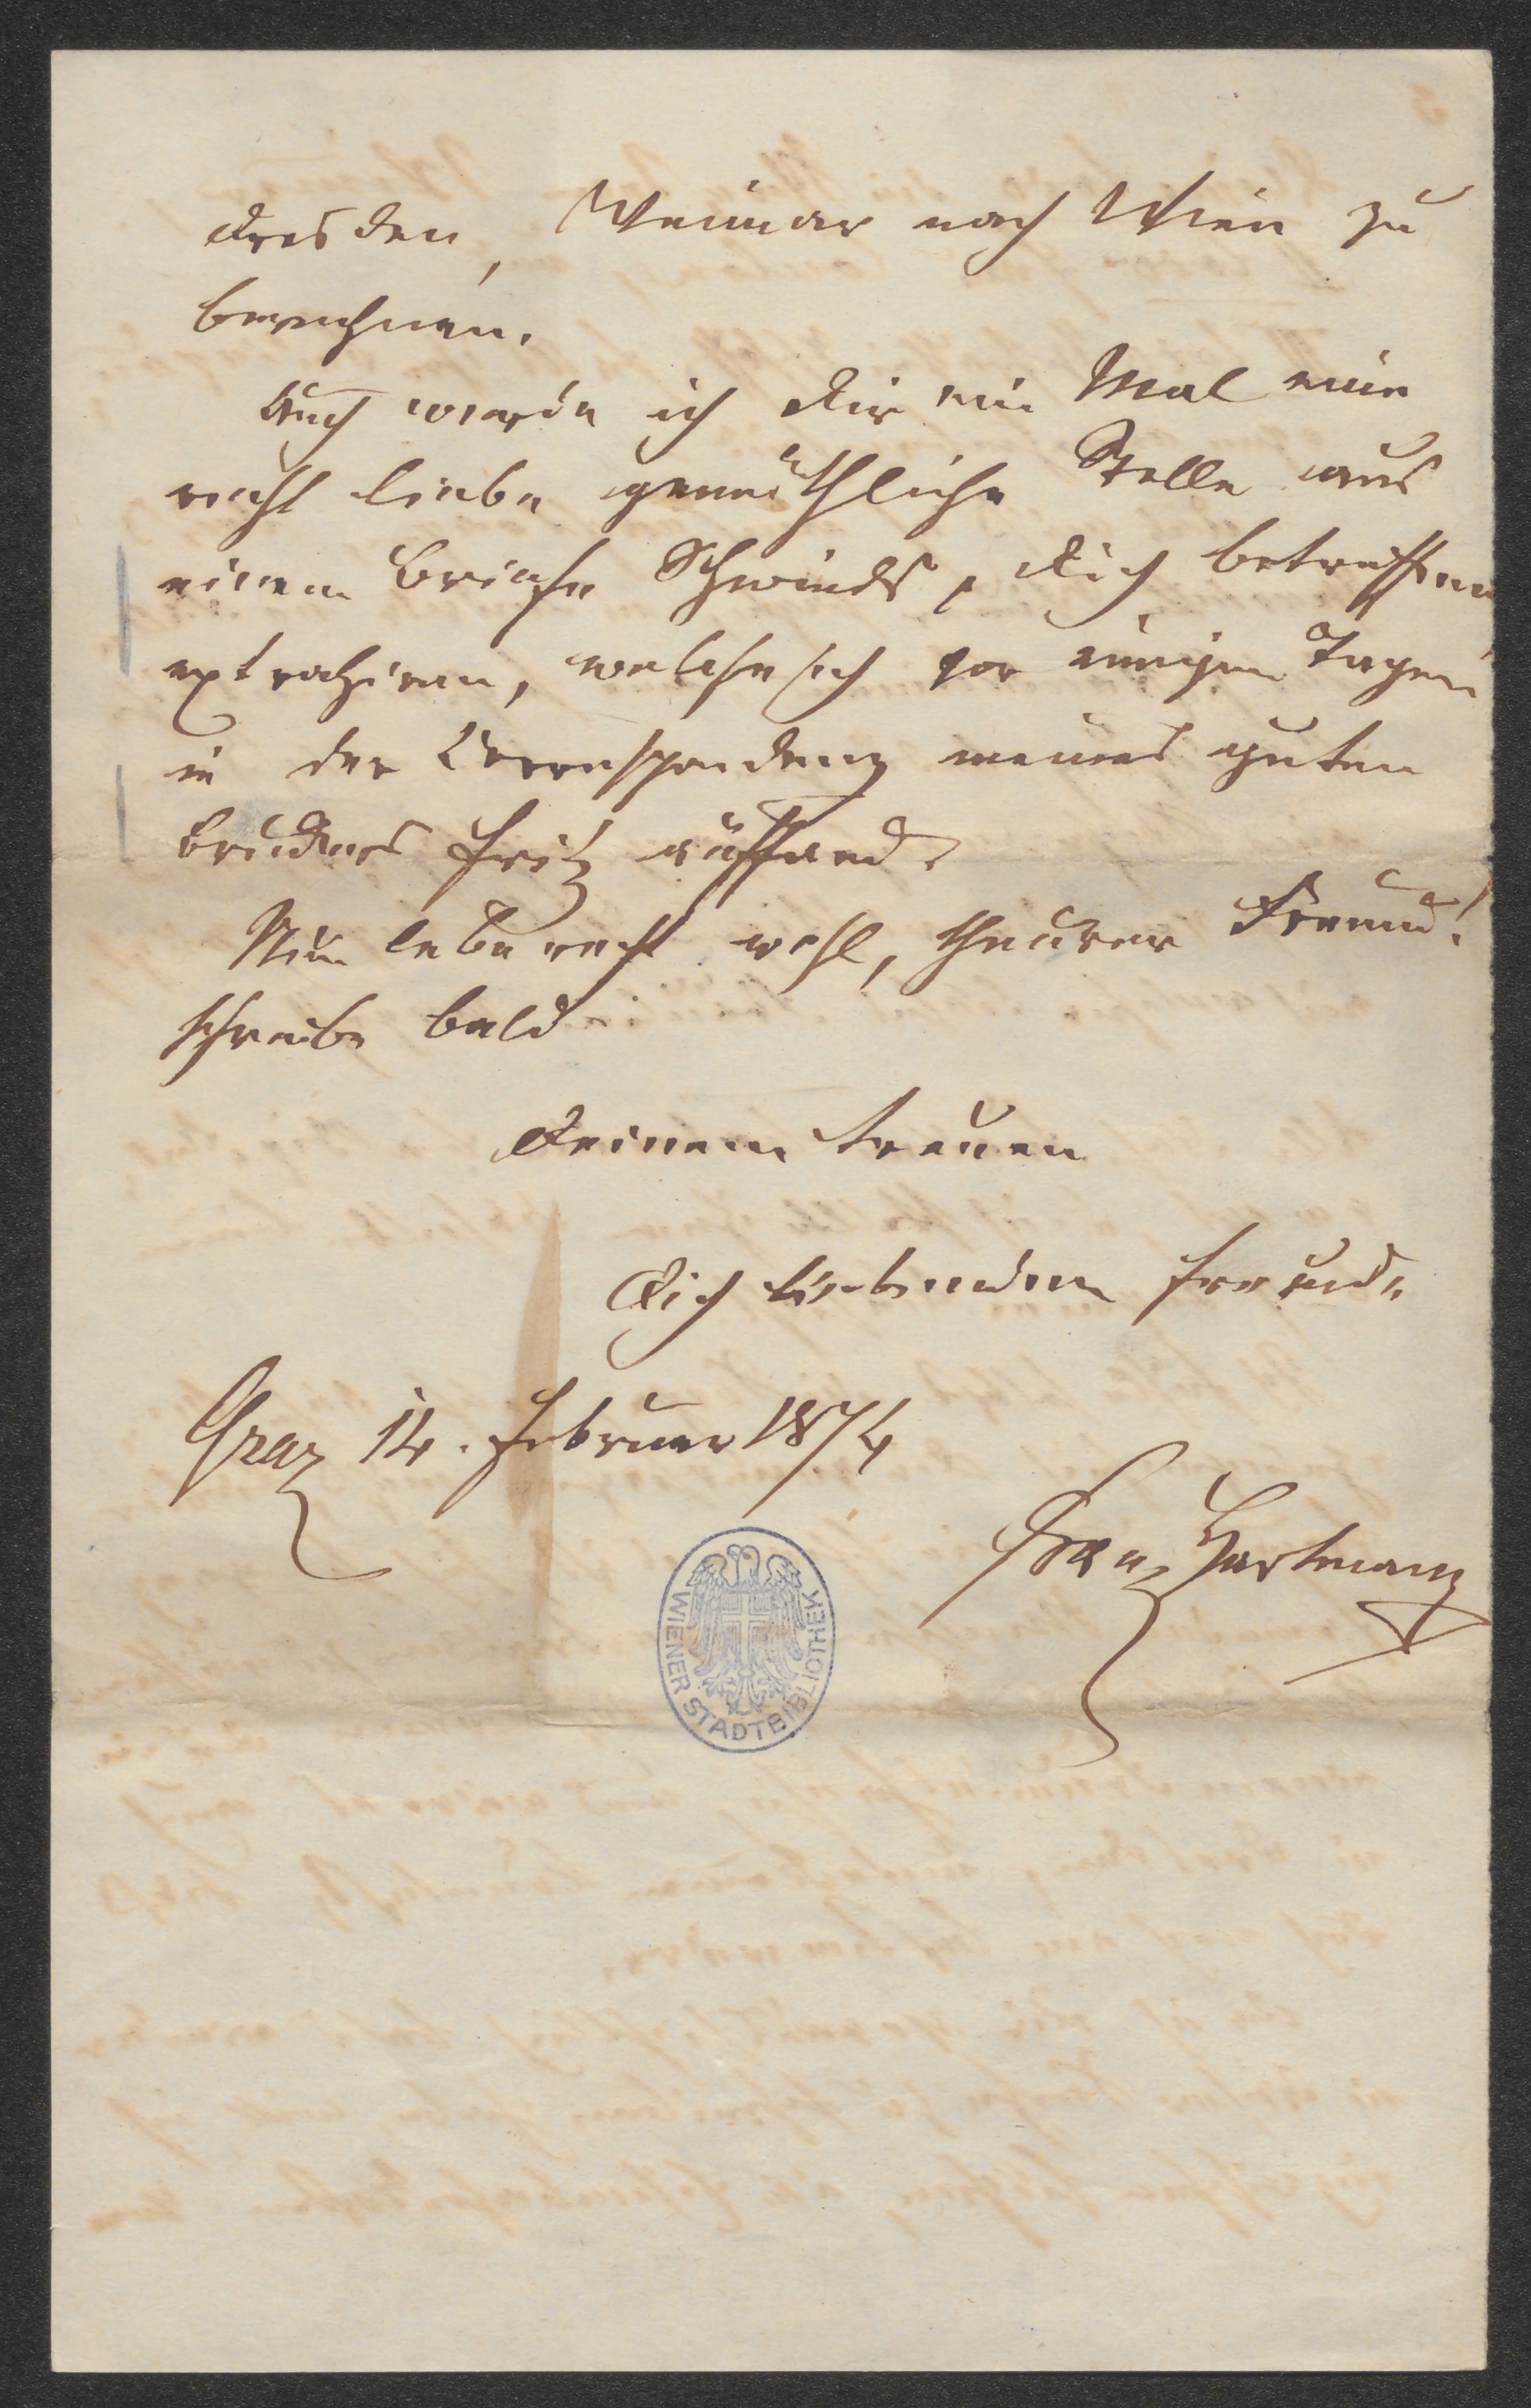 Dresden, Weimar nach Wien zu
berechnen.
Auch werde ich Dir ein Mal eine
recht liebe gemüthliche Stelle aus
einem Briefe Schwinds, Dich betreffend
extrahiren, welche ich vor einigen Tagen
in der Correspondenz meines guten
Bruders Fritz auffand.
Nun lebe recht wohl, theurer Freund!
schreibe bald
Deinem treuen
Dich liebenden Freunde
Graz 14. Februar 1874
Franz Hartmann
WIENER STADTBIBLIOTHEK